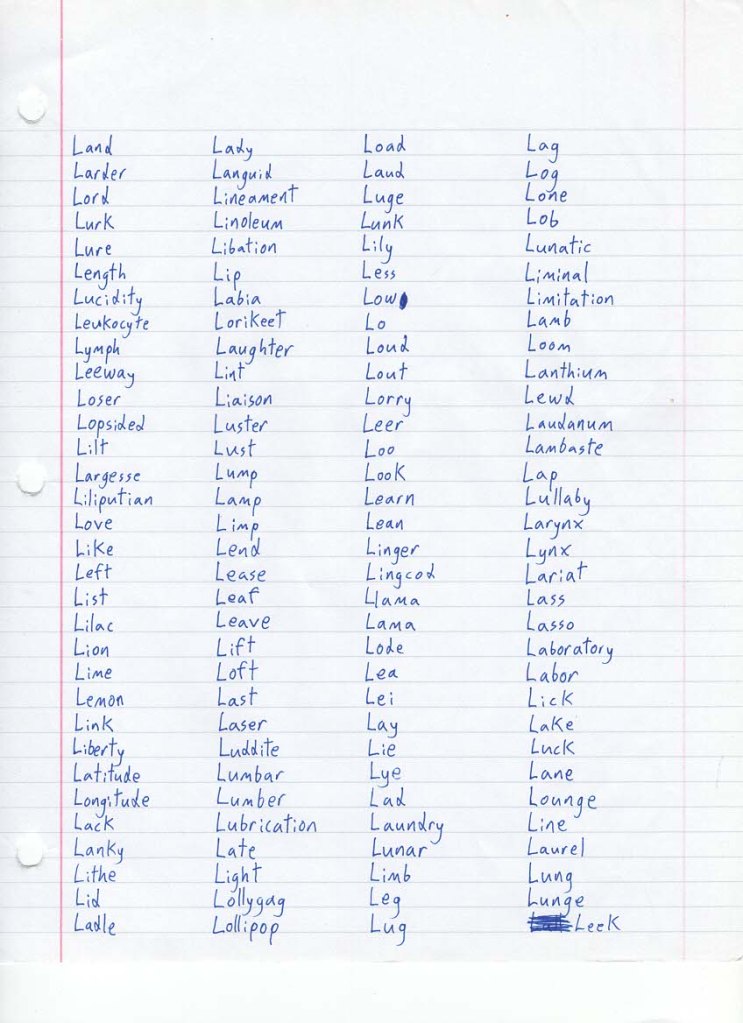 Land Lady Load Lag
Larder Languid Laud Log
Lord Lineament Luge Lone
Lurk Linoleum Lunk Lob
Lure Libation Lily Lunatic
Length Lip Less Liminal
Lucidity Labia Low Limitation
Leukocyte Lorikeet Lo Lamb
Lymph Laughter Loud Loom
Leeway Lint Lout Lanthium
Loser Liaison Lorry Lewd
Lopsided Luster Leer Laudanum
Lilt Lust Loo Lambaste
Largesse Lump Look Lap
Liliputian Lamp Learn Lullaby
Love Limp Lean Larynx
Like Lend Linger Lynx
Left Lease Lingcod Lariat
List Leaf Llama Lass
Lilac Leave Lama Lasso
Lion Lift Lode Laboratory
Lime Loft Lea Labor
Lemon Last Lei Lick
Link Laser Lay Lake
Liberty Luddite Lie Luck
Latitude Lumbar Lye Lane
Longitude Lumber Lad Lounge
Lack Lubrication Laundry Line
Lanky Late Lunar Laurel
Lithe Light Limb Lung
Lid Lollygag Leg Lunge
Ladle Lollipop Lug Leek